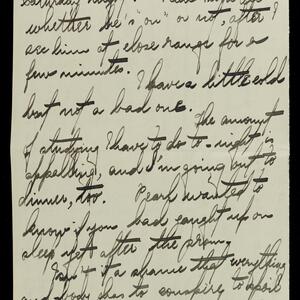 Saturday night.
whether he's "on" or not, after I
see him at close range for a
few minutes.
I have a little cold
but not a bad one.
The amount
of studying I have to do to-night is
appalling, and I'm going out to
dinner, too. Pearl wanted to
know if you had caught up on
sleep yet after the prom.
Isn't it a shame that everything
and body has to conspire to spoil